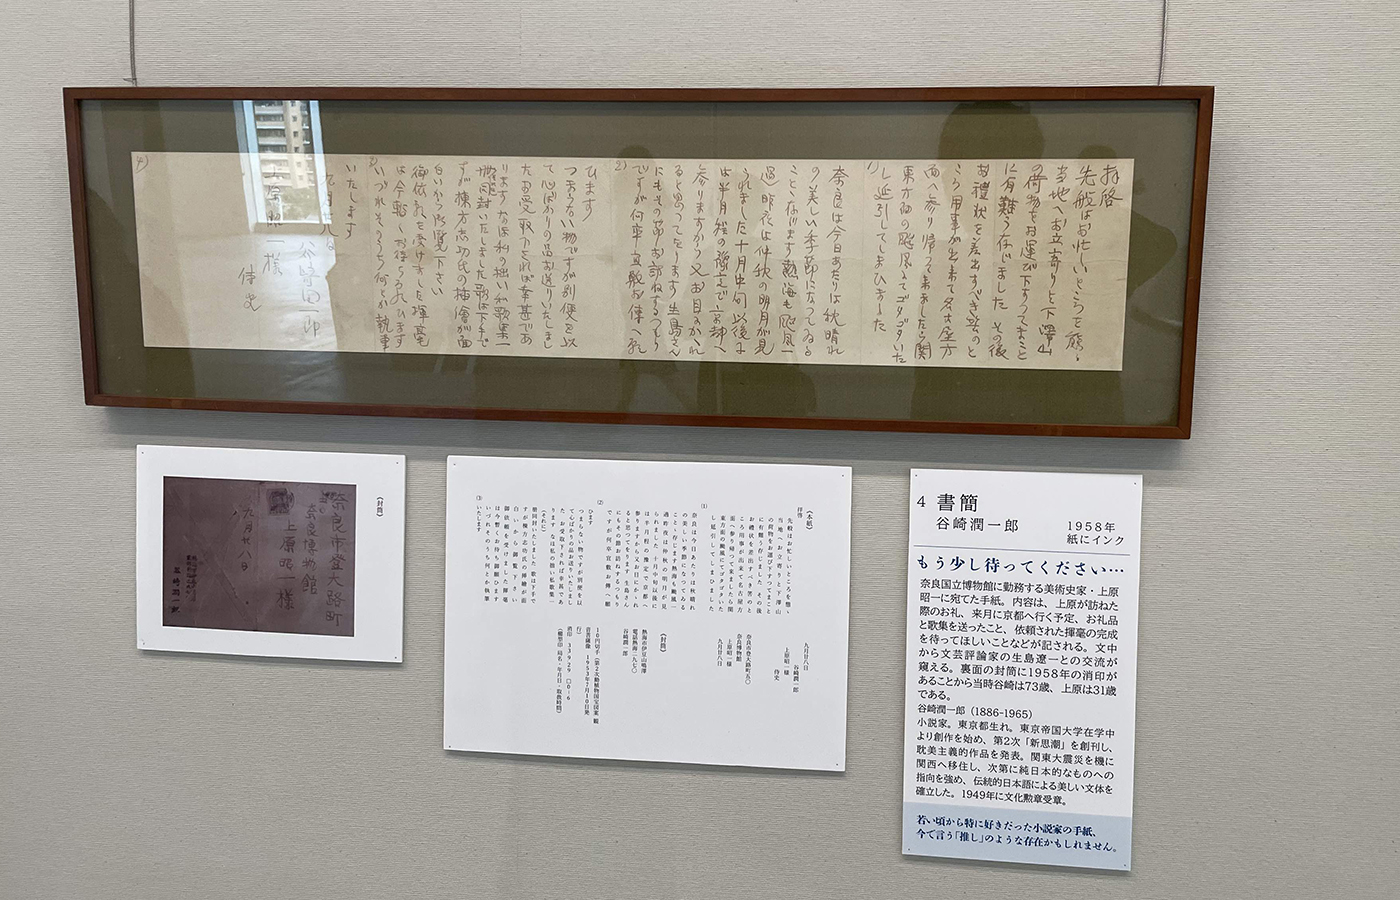 拝啓
先般はお忙しいところを態々
当地へお立寄りと下澤山
の荷物をお運び下すつてまこと
に有難う存じました その後
お禮状を差出すべき筈のと
ころ用事が出来て名古屋方
面へ参り帰つて来ましたら関
東方面の颱風にてゴタゴタいた
し延引してしまひました
1)
奈良は今日あたりは秋晴れ
の美しい季節になつてゐる
ことゝ存じます 熱海も颱風一
過昨夜は仲秋の明月が見
られました 十月中旬以後に
は半月程の豫定で京都へ
参りますから又お目にかゝれ
ると思つてをります 生島さん
にもその節お訪ねするつもり
ですが何卒宜敷お傳へ願
2)
ひます
つまらない物ですが別便を以
て心ばかりの品お送りいたしまし
た お受取下されば幸甚であ
ります なほ私の拙い和歌集一
冊同封いたしました 歌は下手で
すが棟方志功氏の挿繪が面
白いから御覧下さい
御依頼を受けました揮毫
は今暫くお待ち
いづれそのうち何とか執筆
3)
いたします
九月廿八日
谷崎潤一郎
上原昭一様
侍史
4)
(封筒)
奈良市登大路町
奈良博物館
上原昭一様
九月廿八日
谷崎潤一郎
(本紙)
拝啓
先般はお忙しいところを態々
当地へお立寄りと下澤山
の荷物をお運び下すつてまこと
に有難う存じました その後
お禮状を差出すべき筈のと
ころ用事が出来て名古屋方
面へ参り帰つて来ましたら関
東方面の颱風にてゴタゴタいた
し延引してしまひました
(1)
奈良は今日あたりは秋晴れ
の美しい季節になつてゐる
ことゝ存じます 熱海も颱風一
過昨夜は仲秋の明月が見
られました 十月中旬以後に
は半月程の豫定で京都へ
参りますから又お目にかゝれ
ると思つてをります 生島さん
にもその節お訪ねするつもり
ですが何卒宜敷お傳へ願
(2)
ひます
つまらない物ですが別便を以
て心ばかりの品お送りいたしまし
た お受取下されば幸甚であ
ります なほ私の拙い私歌集
(それに)
一冊同封いたしました 歌は下手で
すが棟方志功氏の挿繪が面
白いから御覧下さい
御依頼を受けました揮毫
は今暫くお待ち御願ひます
いづれそのうち何とか執筆
(3)
いたします
九月廿八日
谷崎潤一郎
上原昭一様
侍史
(封筒)
奈良市登大路町五〇
奈良博物館
上原昭一様
九月廿八日
(封筒)
熱海市伊豆山鳴沢
電話熱海二九七〇
谷崎潤一郎
10円切手(第2次動植物国宝図案 観
音菩薩像 1953年7月10日発
行)
消印 33 9 29 □0-6
(櫛型印 局名・年月日・取扱時間)
4 書簡
谷崎潤一郎
1958年
紙にインク
もう少し待ってください…
奈良国立博物館に勤務する美術史家・上原
昭一に宛てた手紙。内容は、上原が訪ねた
際のお礼、来月に京都へ行く予定、お礼品
と歌集を送ったこと、依頼された揮毫の完成
を待ってほしいことなどが記される。文中
から文芸評論家の生島遼一との交流が
窺える。裏面の封筒に1958年の消印が
あることから当時谷崎は73歳、上原は31歳
である。
谷崎潤一郎(1886-1965)
小説家。東京都生れ。東京帝国大学在学中
より創作を始め、第2次「新思潮」を創刊し、
耽美主義的作品を発表。関東大震災を機に
関西へ移住し、次第に純日本的なものへの
指向を強め、伝統的日本語による美しい文体を
確立した。1949年に文化勲章受章。
若い頃から特に好きだった小説家の手紙、
今で言う「推し」のような存在かもしれません。